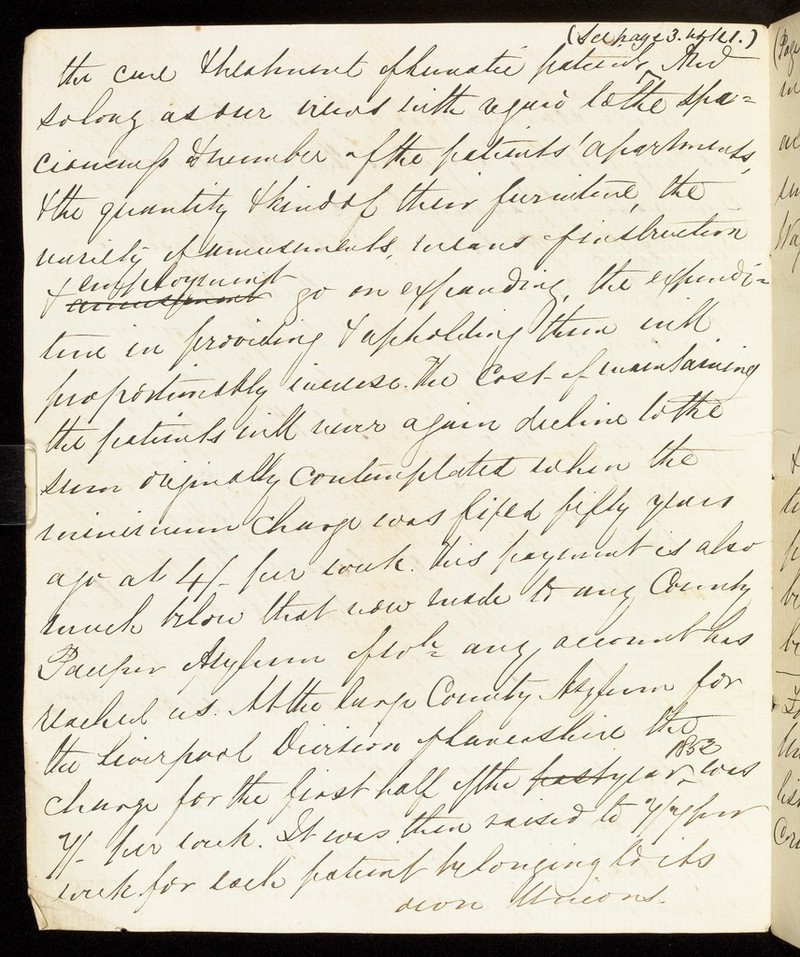 (See page 3. note 1.)
the care & treatment of lunatic patients, And
so long as our views with regard to the spa=
ciousness & number of the patients' apartments,
& the quantity & kind of their furniture, the
variety of amusements, means of instruction
& employment
amusement go on expanding, the expendi=
ture in providing & upholding them will
proportionably increase. The cost of maintaining
the patients will never again decline to the
sum originally contemplated when the
minimum charge was fixed fifty years
ago at 4/- per week. This payment is also
much below that now made to any County
Pauper Asylum of wh. any account has
reached us. At the large County Asylum for
the Liverpool Division of Lancashire the
1852
charge for the first half of the past year, was
7/- per week. It was then raised to 7/7 per
week for each patient belonging to its
own Unions.
(Page